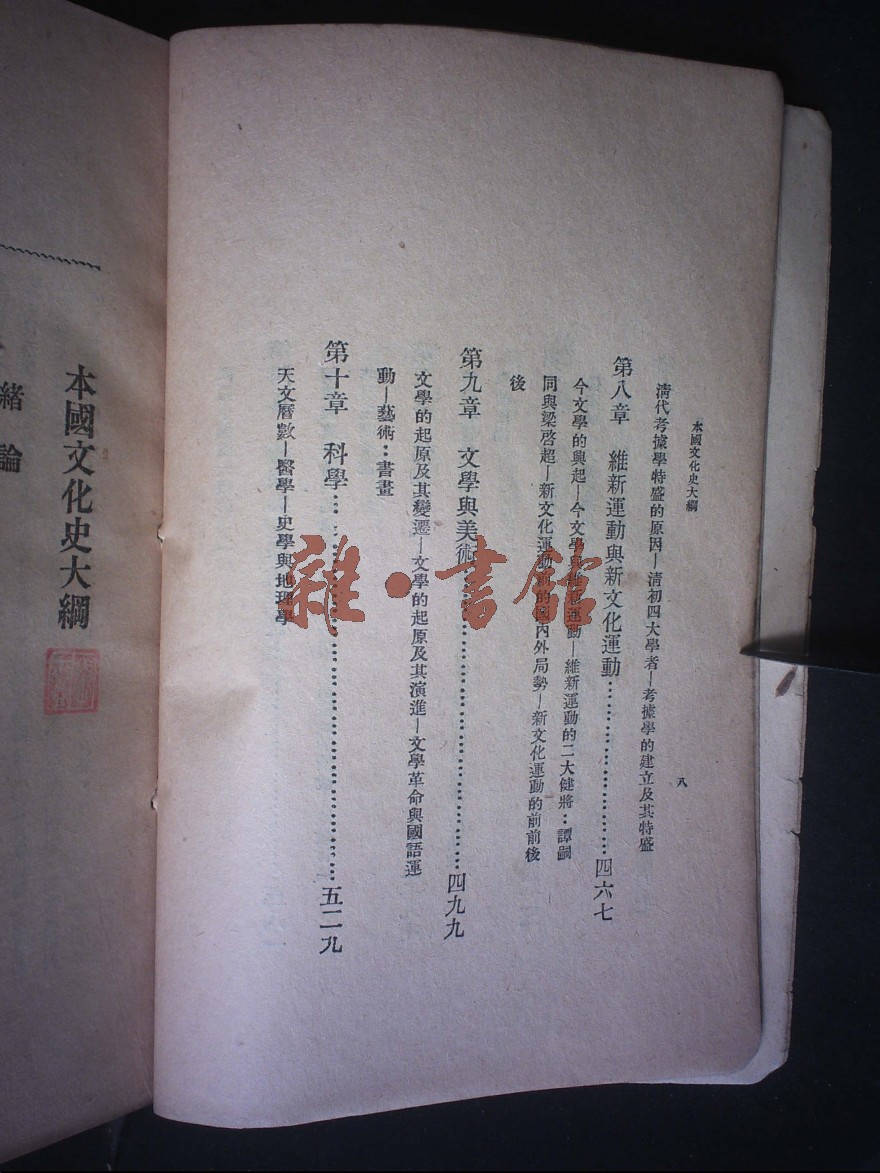 本國文化史大綱
八
清代考據學特盛的原因—清初四大學者—考據學的建立及其特盛
第八章 維新運動與新文化運動……………………四六七
今文學的興起—今文學與維新運動—維新運動的二大健將：譚嗣
同與梁啓超—新文化運動前的國內外局勢—新文化運動的前前後
後
第九章 文學與美術……………………四九九
文學的起原及其變遷—文學的起原及其演進—文學革命與國語運
動—藝術：書畫
第十章 科學……………………五二九
天文曆數—醫學—史學與地理學
雜·書館
本國文化史大綱
緒論